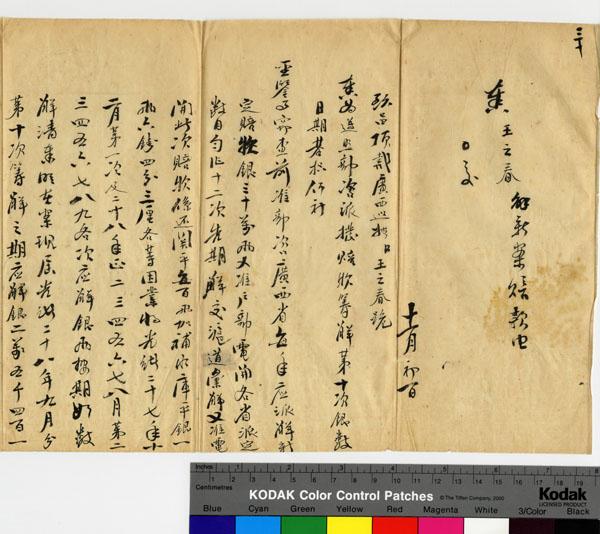 奏 王之春 解新案賠款由
十一月初一日
頭品頂戴廣西巡撫臣王之春跪
奏為遵照部咨派撥賠款籌解第十次銀數
日期恭摺仰祈
聖鑒事竊查前准部咨廣西省每年應派解新
定賠款銀三十萬兩又准戶部電開各省派定
數目勻作十二次先期解交滬道彙解又准電
開此次賠款係還關平每百兩加補水庫平銀一
兩六錢四分三釐各等因業將光緒二十七年十
二月第一次及二十八年正二三四五六七八月第二
三四五六七八九各次應解銀兩按期如數
解清奏明在案現屆光緒二十八年九月分
第十次籌解之期應解銀二萬五千四百一
Inches 1 2 3 4 5 6 7 8
Centimetres
KODAK Color Control Patches © The Tiffen Company, 2000
Kodak
LICENSED PRODUCT
Blue Cyan Green Yellow Red Magenta White 3/Color Black